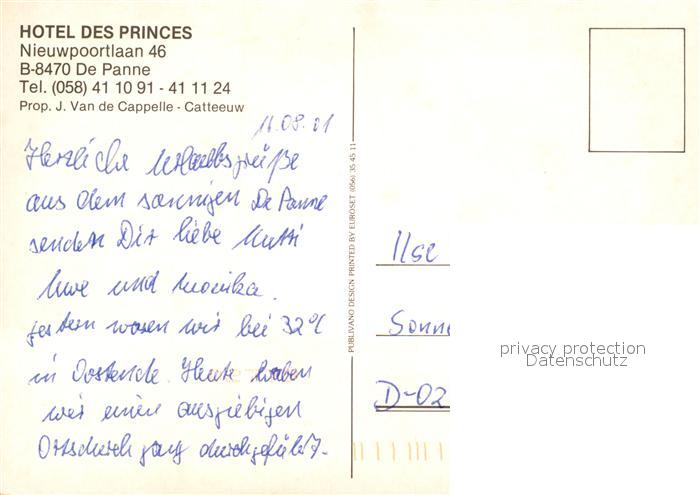 HOTEL DES PRINCES
Nieuwpoortlaan 46
B-8470 De Panne
Tel. (058) 41 10 91 - 41 11 24
Prop. J. Van de Cappelle - Catteeuw
11.08.01
Herzliche Urlaubsgrüße
aus dem sonnigen De Panne
senden Dir liebe Mutti
Uwe und Monika.
gestern waren wir bei 32°C
in Oostende. Heute haben
wir einen ausgiebigen
Ortsdurchgang durchgeführt.
PUBLIVANO DESIGN PRINTED BY EUROSET (056) 35 45 11
Ilse
Sonne
D-02
privacy protection
Datenschutz